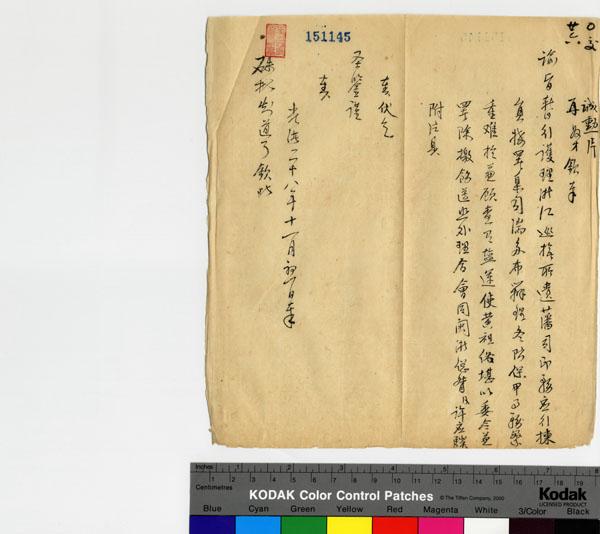 交
廿六
誠勳片
再奴才欽奉
諭旨飭護理浙江巡撫所遺藩司印務應行揀
員接署臬司湍多布辦理冬防保甲事務繁
重難於兼顧查有鹽運使黄祖絡堪以委令兼
署除檄飭遵照外理合會同閩浙總督臣許應騤
附片具
奏伏乞
聖鑒謹
奏
硃批知道了欽此
光緒二十八年十一月初一日奉
151145
Inches 1 2 3 4 5 6 7 8
Centimetres 1 2 3 4 5 6 7 8 9 10 11 12 13 14 15 16 17 18 19 20
KODAK Color Control Patches
© The Tiffen Company, 2000
Kodak
LICENSED PRODUCT
Blue Cyan Green Yellow Red Magenta White 3/Color Black